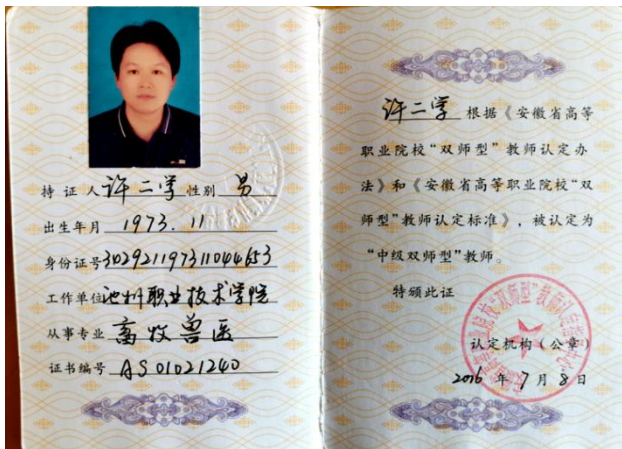 持证人 许二学 性别 男
出生年月 1973.11
身份证号 302921197311044653
工作单位 池州职业技术学院
从事专业 畜牧兽医
证书编号 AS01021240
许二学 根据《安徽省高等
职业院校“双师型”教师认定办
法》和《安徽省高等职业院校“双
师型”教师认定标准》，被认定为
“中级双师型”教师。
特颁此证
认定机构（公章）
2016 年 7 月 8 日